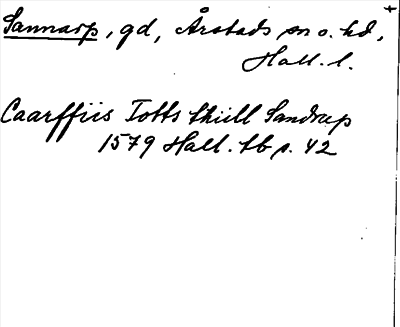 Sannarp, gd, Årstads sn o. hd,
Hall. l.
Caarffiis Totts thiill Sandrup
1579 Hall. tb s. 42